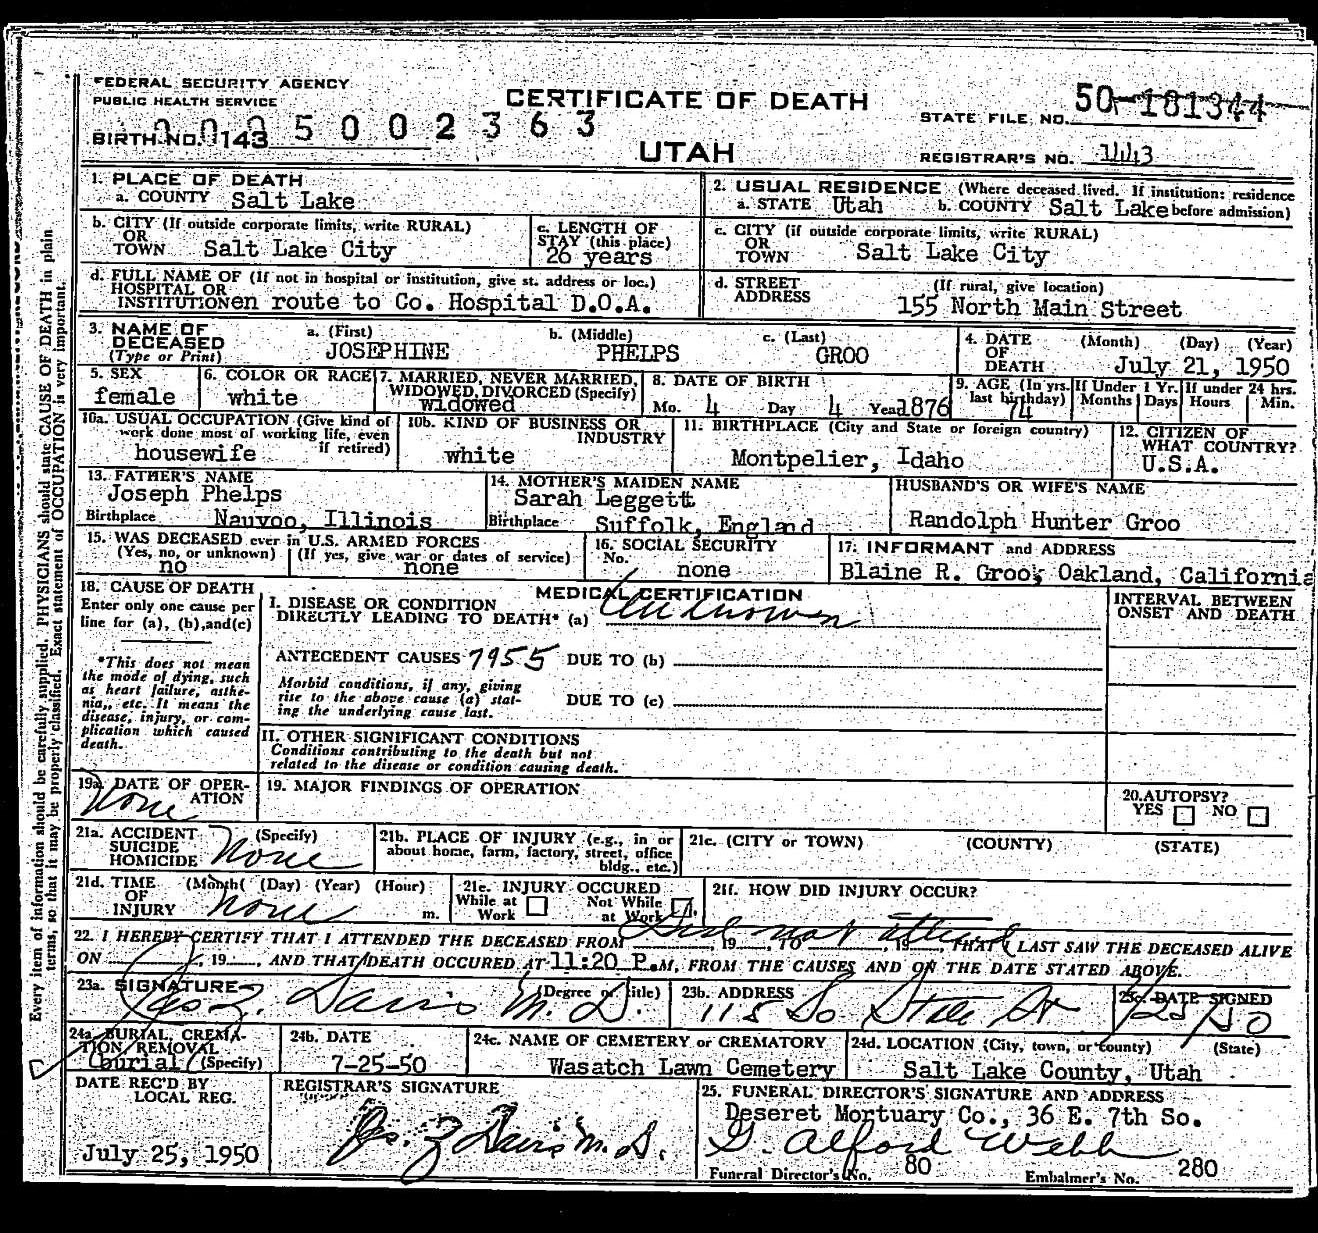 FEDERAL SECURITY AGENCY
PUBLIC HEALTH SERVICE
CERTIFICATE OF DEATH
STATE FILE NO. 50-181344
BIRTH NO. 143
5 0 0 2 3 6 3
UTAH
REGISTRAR'S NO. 1443
1. PLACE OF DEATH
a. COUNTY Salt Lake
2. USUAL RESIDENCE (Where deceased lived. If institution: residence before admission)
a. STATE Utah b. COUNTY Salt Lake
b. CITY (If outside corporate limits, write RURAL)
OR
TOWN Salt Lake City
c. LENGTH OF
STAY (this place)
26 years
c. CITY (if outside corporate limits, write RURAL)
OR
TOWN Salt Lake City
d. FULL NAME OF (If not in hospital or institution, give st. address or loc.)
HOSPITAL OR
INSTITUTION en route to Co. Hospital D.O.A.
d. STREET (If rural, give location)
ADDRESS 155 North Main Street
3. NAME OF
DECEASED
(Type or Print)
a. (First) b. (Middle) c. (Last)
JOSEPHINE PHELPS GROO
4. DATE (Month) (Day) (Year)
OF
DEATH July 21, 1950
5. SEX
female
6. COLOR OR RACE
white
7. MARRIED, NEVER MARRIED,
WIDOWED, DIVORCED (Specify)
widowed
8. DATE OF BIRTH
Mo. 4 Day 4 Year 1876
9. AGE (In yrs.
last birthday)
74
If Under 1 Yr.
Months Days
If under 24 hrs.
Hours Min.
10a. USUAL OCCUPATION (Give kind of
work done most of working life, even
if retired)
housewife
10b. KIND OF BUSINESS OR
INDUSTRY
white
11. BIRTHPLACE (City and State or foreign country)
Montpelier, Idaho
12. CITIZEN OF
WHAT COUNTRY?
U.S.A.
13. FATHER'S NAME
Joseph Phelps
Birthplace Nauvoo, Illinois
14. MOTHER'S MAIDEN NAME
Sarah Leggett
Birthplace Suffolk, England
HUSBAND'S OR WIFE'S NAME
Randolph Hunter Groo
15. WAS DECEASED ever in U.S. ARMED FORCES
(Yes, no, or unknown) (If yes, give war or dates of service)
no none
16. SOCIAL SECURITY
No. none
17. INFORMANT and ADDRESS
Blaine R. Groo, Oakland, California
18. CAUSE OF DEATH
Enter only one cause per
line for (a), (b), and (c)
*This does not mean
the mode of dying, such
as heart failure, asthe-
nia,, etc. It means the
disease, injury, or com-
plication which caused
death.
MEDICAL CERTIFICATION
I. DISEASE OR CONDITION
DIRECTLY LEADING TO DEATH* (a) Unknown
ANTECEDENT CAUSES 7955 DUE TO (b)
Morbid conditions, if any, giving
rise to the above cause (a) stat-
ing the underlying cause last.
DUE TO (c)
II. OTHER SIGNIFICANT CONDITIONS
Conditions contributing to the death but not
related to the disease or condition causing death.
INTERVAL BETWEEN
ONSET AND DEATH
19a. DATE OF OPER-
ATION
None
19. MAJOR FINDINGS OF OPERATION
20. AUTOPSY?
YES NO
21a. ACCIDENT (Specify)
SUICIDE
HOMICIDE None
21b. PLACE OF INJURY (e.g., in or
about home, farm, factory, street, office
bldg., etc.)
21c. (CITY or TOWN) (COUNTY) (STATE)
21d. TIME (Month( (Day) (Year) (Hour)
OF
INJURY none m.
21e. INJURY OCCURED
While at Work Not While at Work
21f. HOW DID INJURY OCCUR?
22. I HEREBY CERTIFY THAT I ATTENDED THE DECEASED FROM , 19 , TO , 19 , THAT I LAST SAW THE DECEASED ALIVE
Did not attend
ON , 19 , AND THAT DEATH OCCURED AT 11:20 P.M, FROM THE CAUSES AND ON THE DATE STATED ABOVE.
23a. SIGNATURE (Degree or title)
Jas. Z. Davis M. D.
23b. ADDRESS
115 So State St
23c. DATE SIGNED
7/25/50
24a. BURIAL, CREMA-
TION, REMOVAL
burial (Specify)
24b. DATE
7-25-50
24c. NAME OF CEMETERY or CREMATORY
Wasatch Lawn Cemetery
24d. LOCATION (City, town, or county) (State)
Salt Lake County, Utah
DATE REC'D BY
LOCAL REG.
July 25, 1950
REGISTRAR'S SIGNATURE
Jas. Z Davis M. D.
25. FUNERAL DIRECTOR'S SIGNATURE AND ADDRESS
Deseret Mortuary Co., 36 E. 7th So.
G. Alford Webb
Funeral Director's No. 80 Embalmer's No. 280
Every item of information should be carefully supplied. PHYSICIANS should state CAUSE OF DEATH in plain
terms, so that it may be properly classified. Exact statement of OCCUPATION is very important.